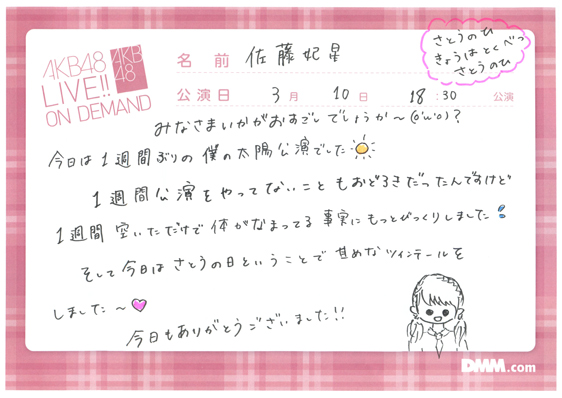 AKB48
LIVE!!
ON DEMAND
AKB
48
名前 佐藤妃星
さとうのひ
きょうはとくべつ
さとうのひ
公演日 3月 10日 18:30 公演
みなさまいかがおすごしでしょうか〜(о'ω'о)?
今日は1週間ぶりの僕の太陽公演でした
1週間公演をやってないこともおどろきだったんですけど
1週間空いただけで体がなまってる事実にもっとびっくりしました
そして今日はさとうの日ということで甘めなツインテールを
しました〜
今日もありがとうございました!!
DMM.com